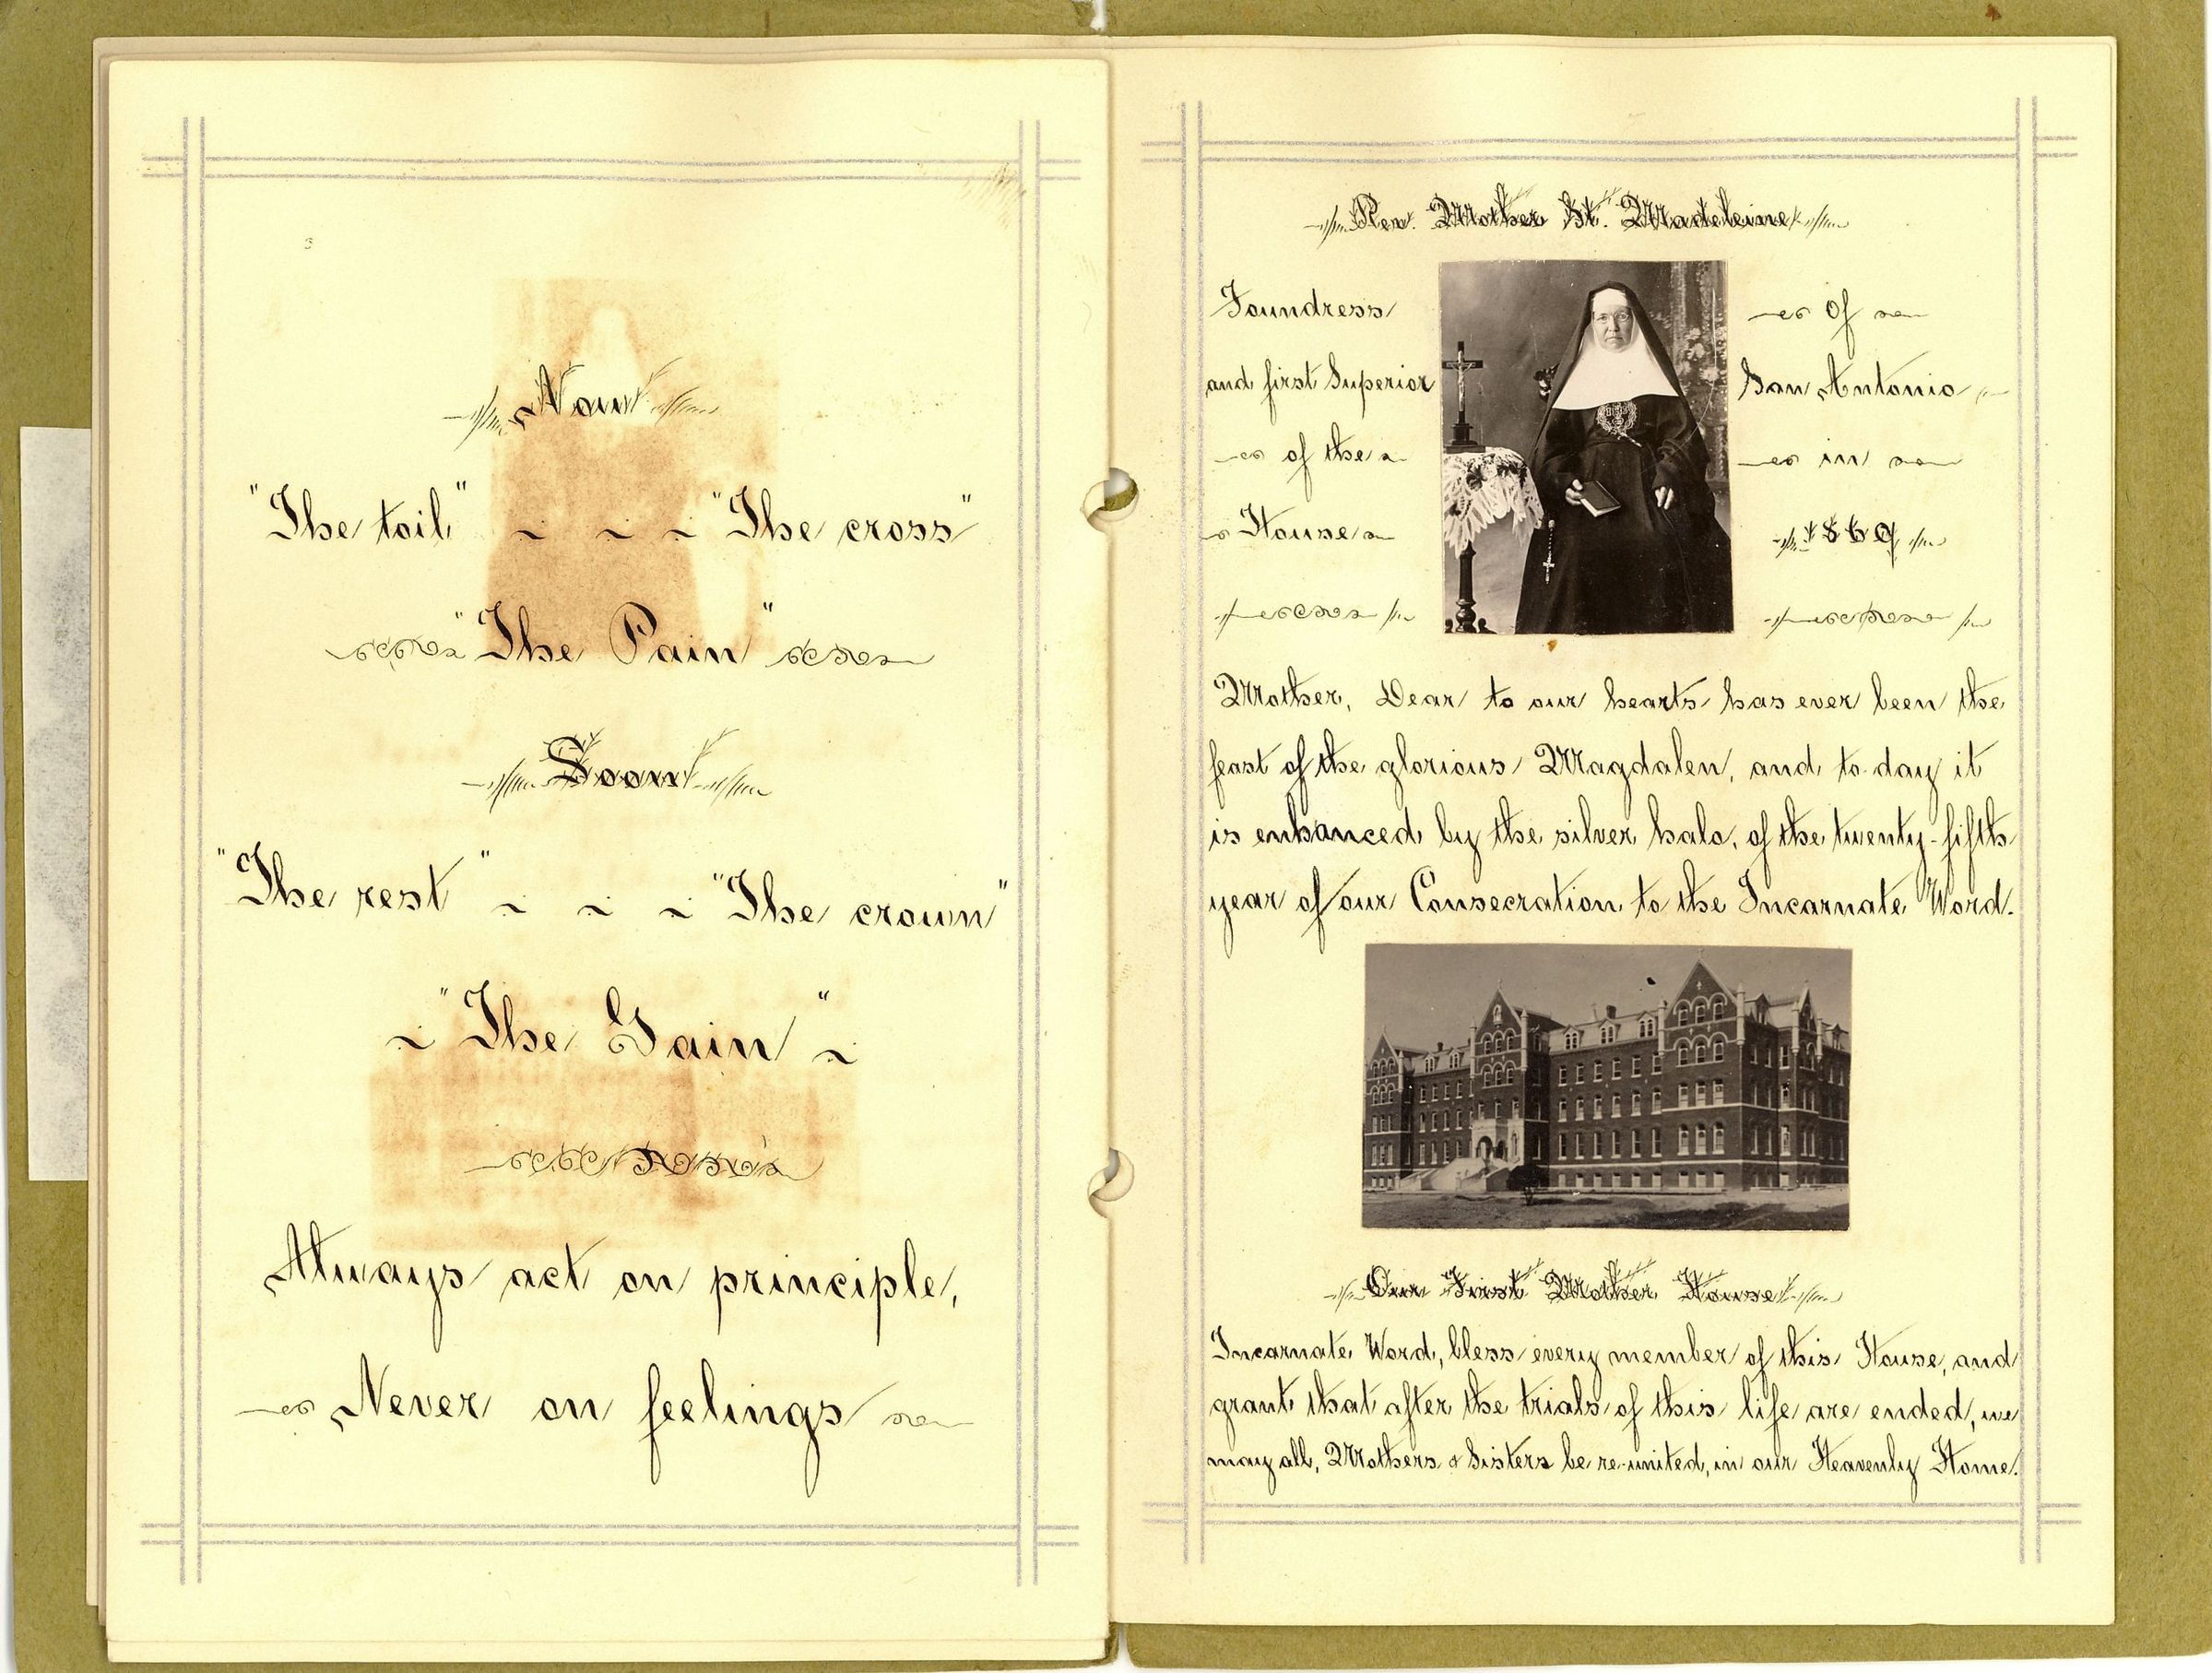 Now
"The toil" "The cross"
"The Pain"
Soon
"The rest" "The crown"
"The Gain"
Always act on principle,
Never on feelings
Rev. Mother St. Madeleine
Foundress
and first Superior
of the
House
Of
San Antonio
in
1869
Mother, Dear to our hearts has ever been the
feast of the glorious Magdalen, and to-day it
is enhanced by the silver halo, of the twenty-fifth
year of our Consecration to the Incarnate Word.
Our First Mother House
Incarnate Word, bless every member of this House, and
grant that after the trials of this life are ended, we
may all, Mothers & Sisters be re-united, in our Heavenly Home.